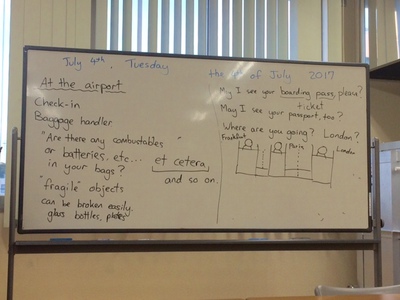 July 4th, Tuesday
the 4th of July 2017
At the airport
Check-in
Baggage handler
"Are there any combustables"
or batteries, etc... et cetera,
in your bags? and so on.
"fragile" objects
can be broken easily.
glass bottles, plates
May I see your boarding pass, please?
ticket
May I see your passport, too?
Where are you going? London?
Frankfurt Paris London